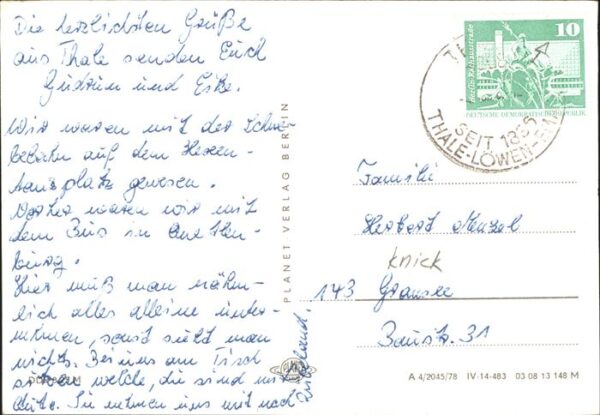 Die herzlichsten Grüße
aus Thale senden Euch
Gudrun und Eike.
Wir waren mit der Schwe-
bebahn auf dem Hexen-
tanzplatz gewesen.
Vorher waren wir mit
dem Bus in Quedlin-
burg.
Hier muß man näm-
lich alles alleine unter-
nehmen, sonst sieht man
nichts. Bei uns am Tisch
sitzen welche, die sind mit
Auto. Sie nehmen uns mit nach
PLANET VERLAG BERLIN
10
DEUTSCHE DEMOKRATISCHE REPUBLIK
SEIT 1835
THALE-LÖWEN-
Familie
Herbert Menzel
knick
143 Gransee
Baustr. 31
A 4/2045/78 IV-14-483 03 08 13 148 M